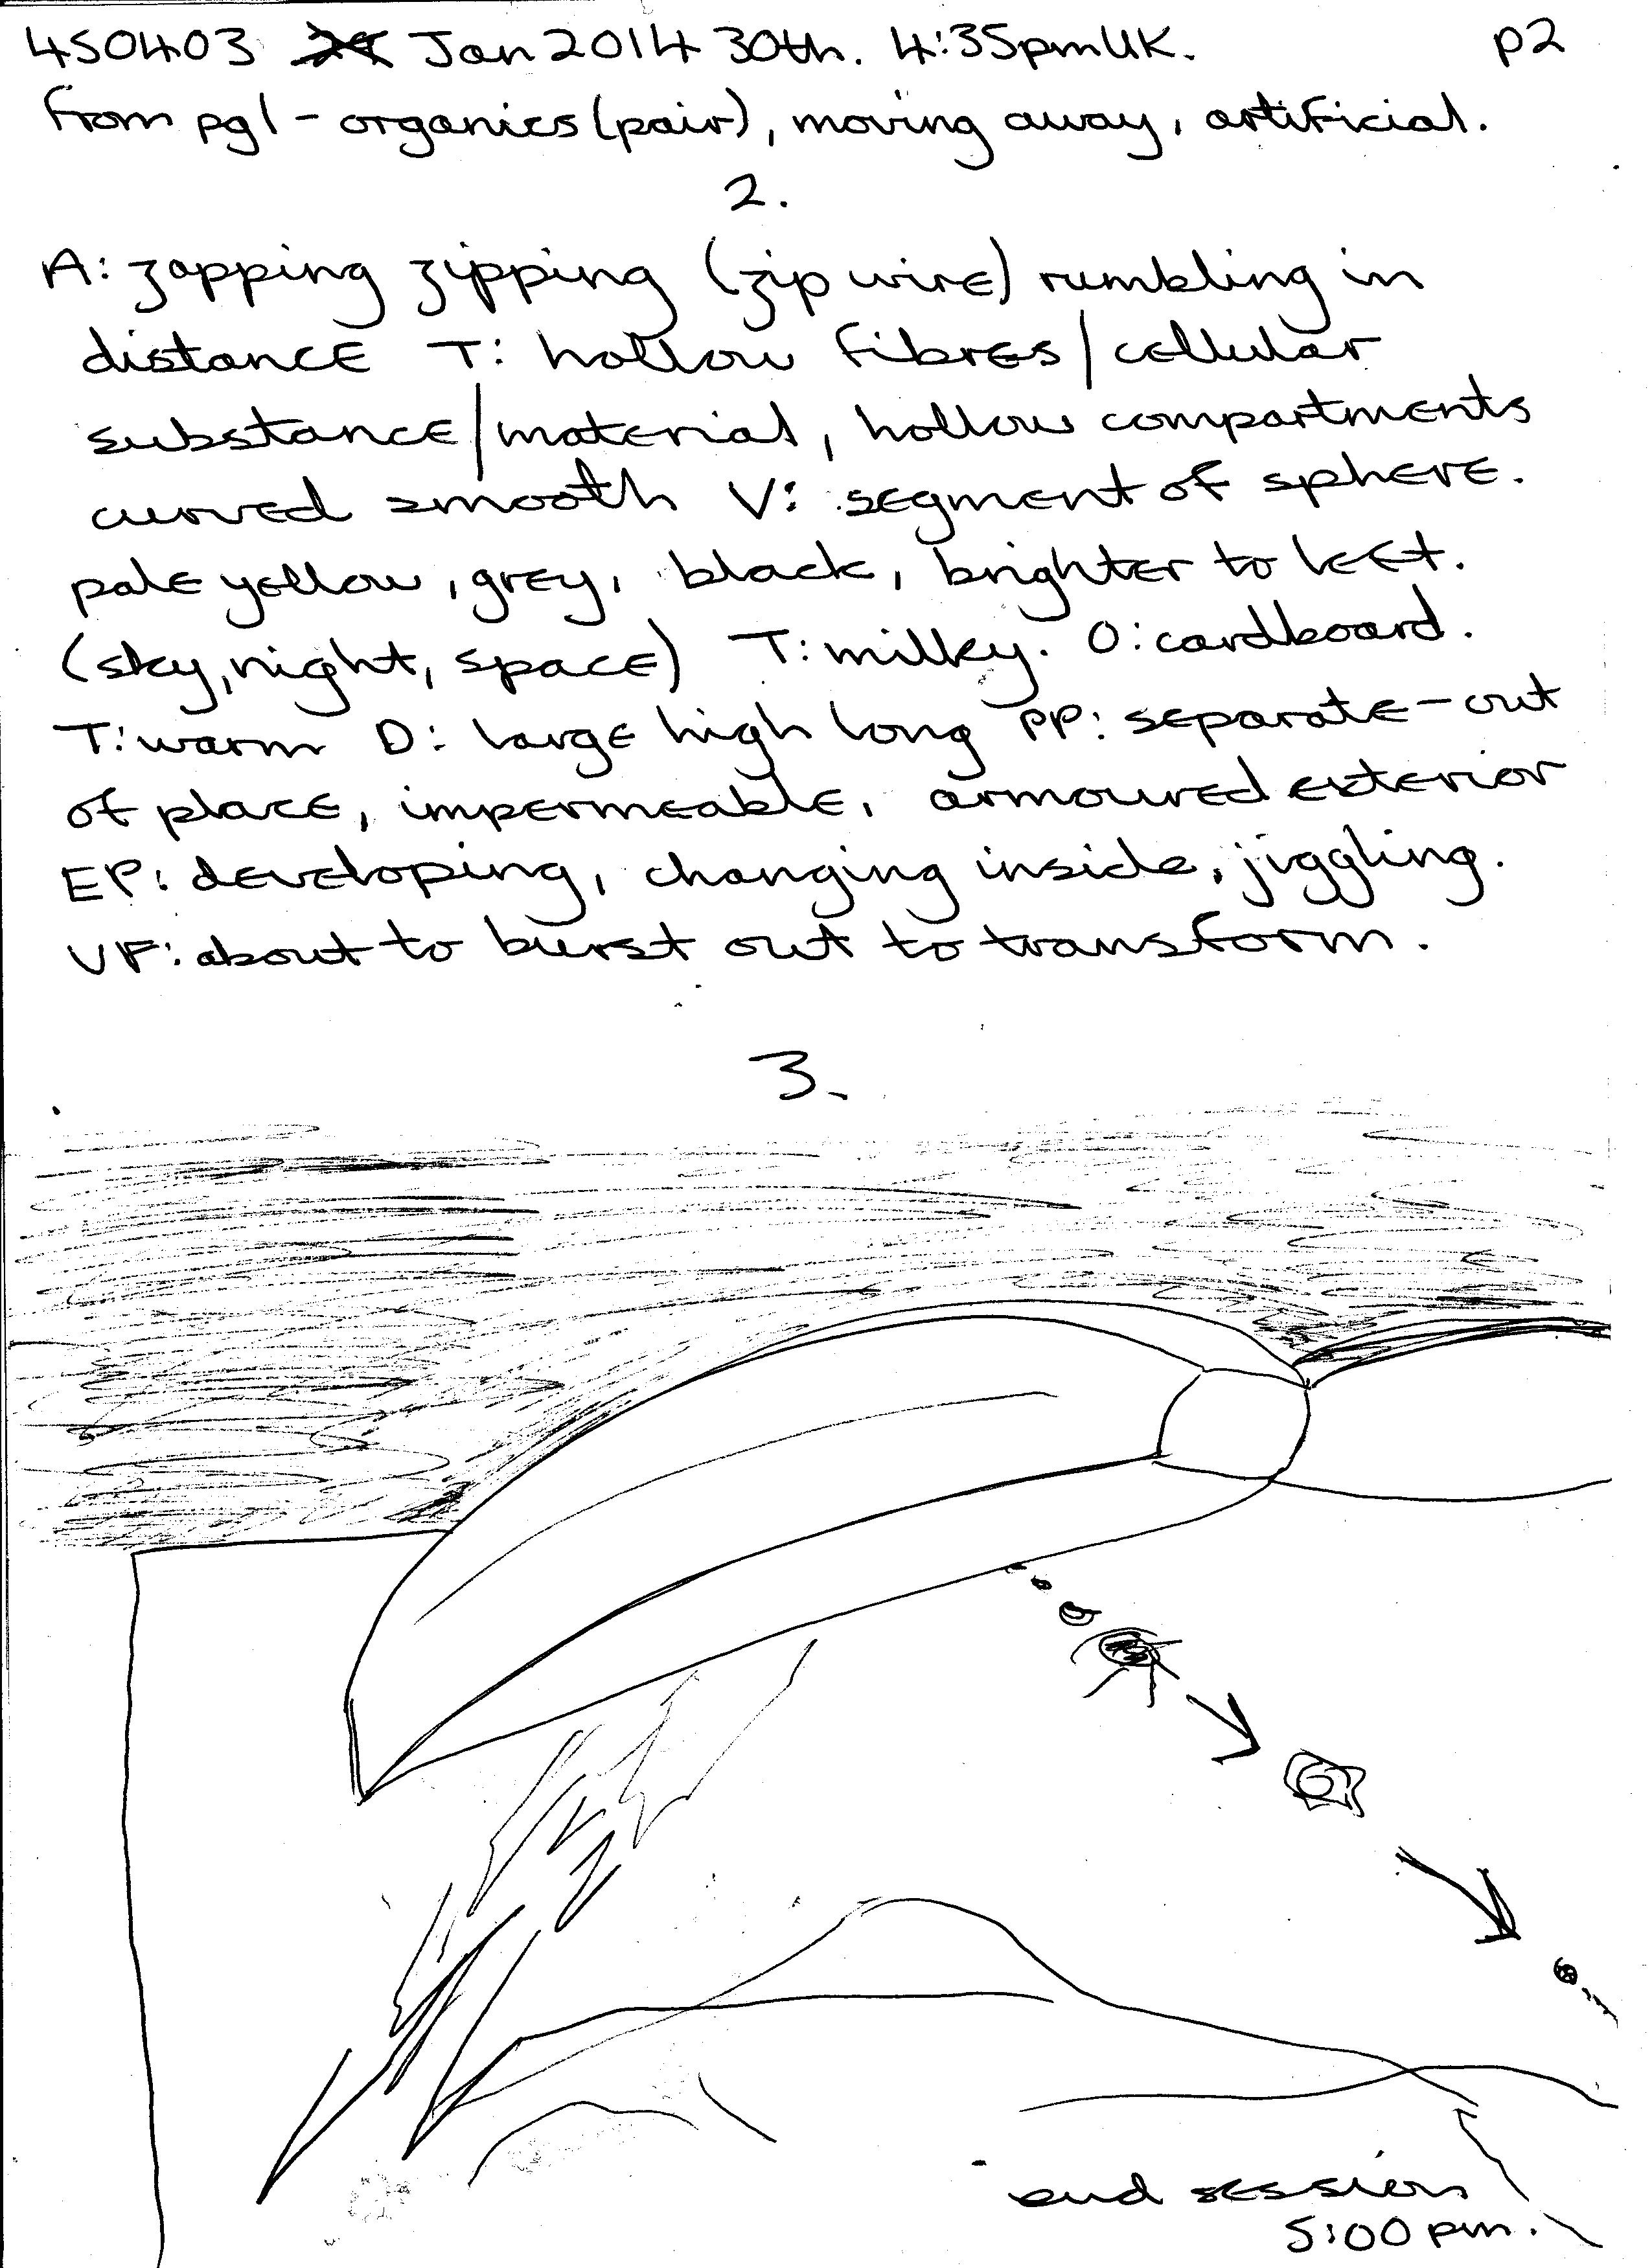 450403 Jan 2014 30th. 4:35pm UK. p2
from pg1 - organics (pair), moving away, artificial.
2.
A: zapping zipping (zip wire) rumbling in
distance T: hollow fibres/cellular
substance/material, hollow compartments
curved smooth V: segment of sphere.
pale yellow, grey, black, brighter to left.
(sky, night, space) T: milky. O: cardboard.
T: warm D: large high long PP: separate-out
of place, impermeable, armoured exterior
EP: developing, changing inside, jiggling.
VF: about to burst out to transform.
3.
end session
5:00 pm.